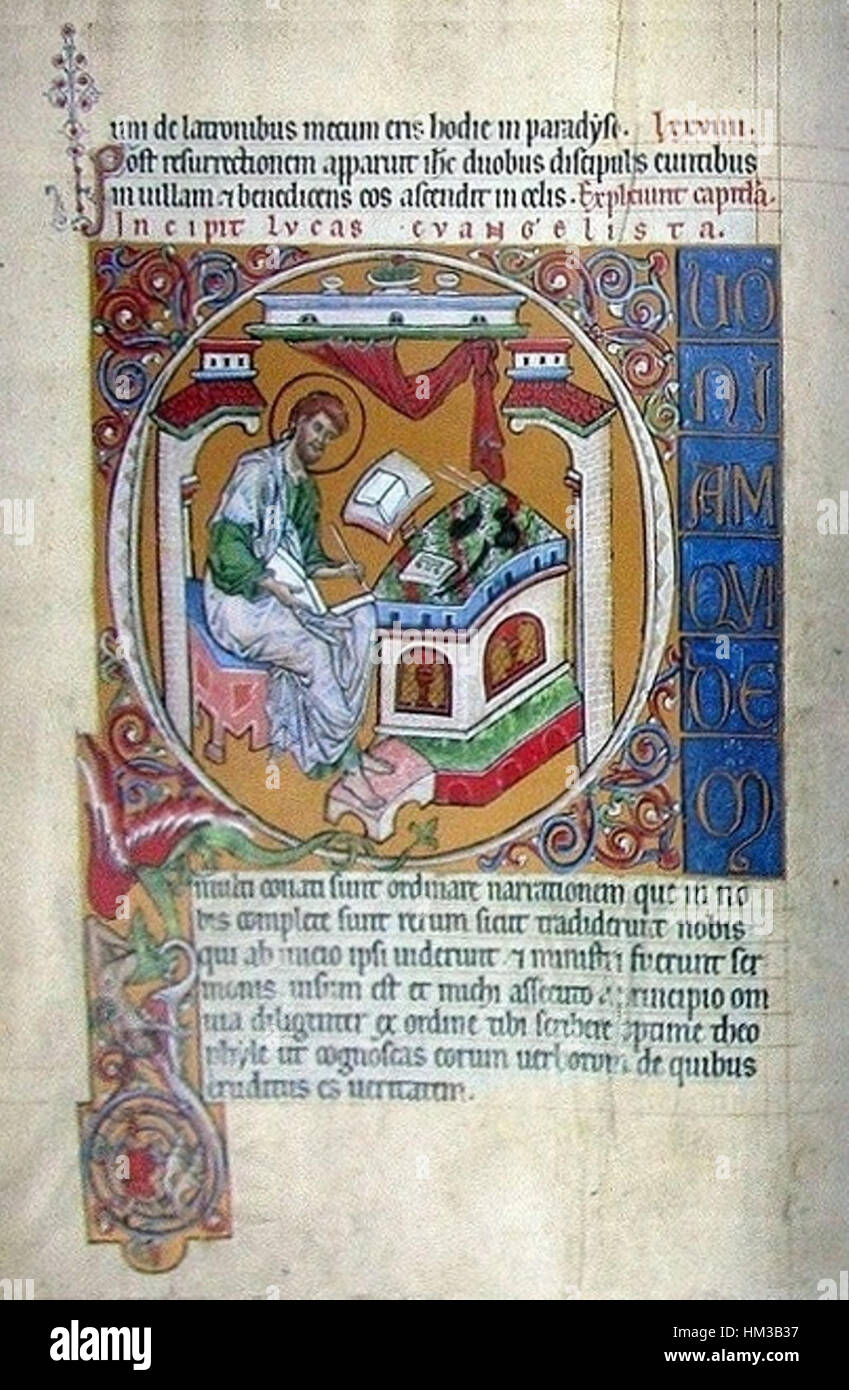 um de latronibus mecum eris hodie in paradyso. lxxviiii.
Post resurrectionem apparuit ihc duobus discipulis euntibus
in uillam ⁊ benedicens eos ascendit in celis. Expliciunt capitula.
Incipit Lvcas evangelista.
UO
NI
AM
QVI
DE
M
multi conati sunt ordinare narrationem que in no
bis complete sunt rerum sicut tradiderunt nobis
qui ab inicio ipsi uiderunt ⁊ ministri fuerunt ser
monis uisum est et michi assecuto a principio om
nia diligenter ex ordine tibi scribere optime theo
phyle ut cognoscas eorum uerborum de quibus
eruditus es ueritatem.
alamy
alamy
Image ID: HM3B37
www.alamy.com